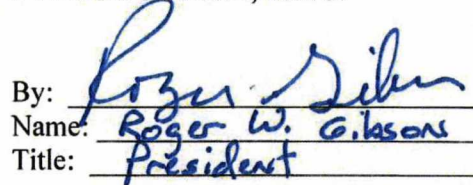 By: Roger Gibson
Name: Roger W. Gibson
Title: President